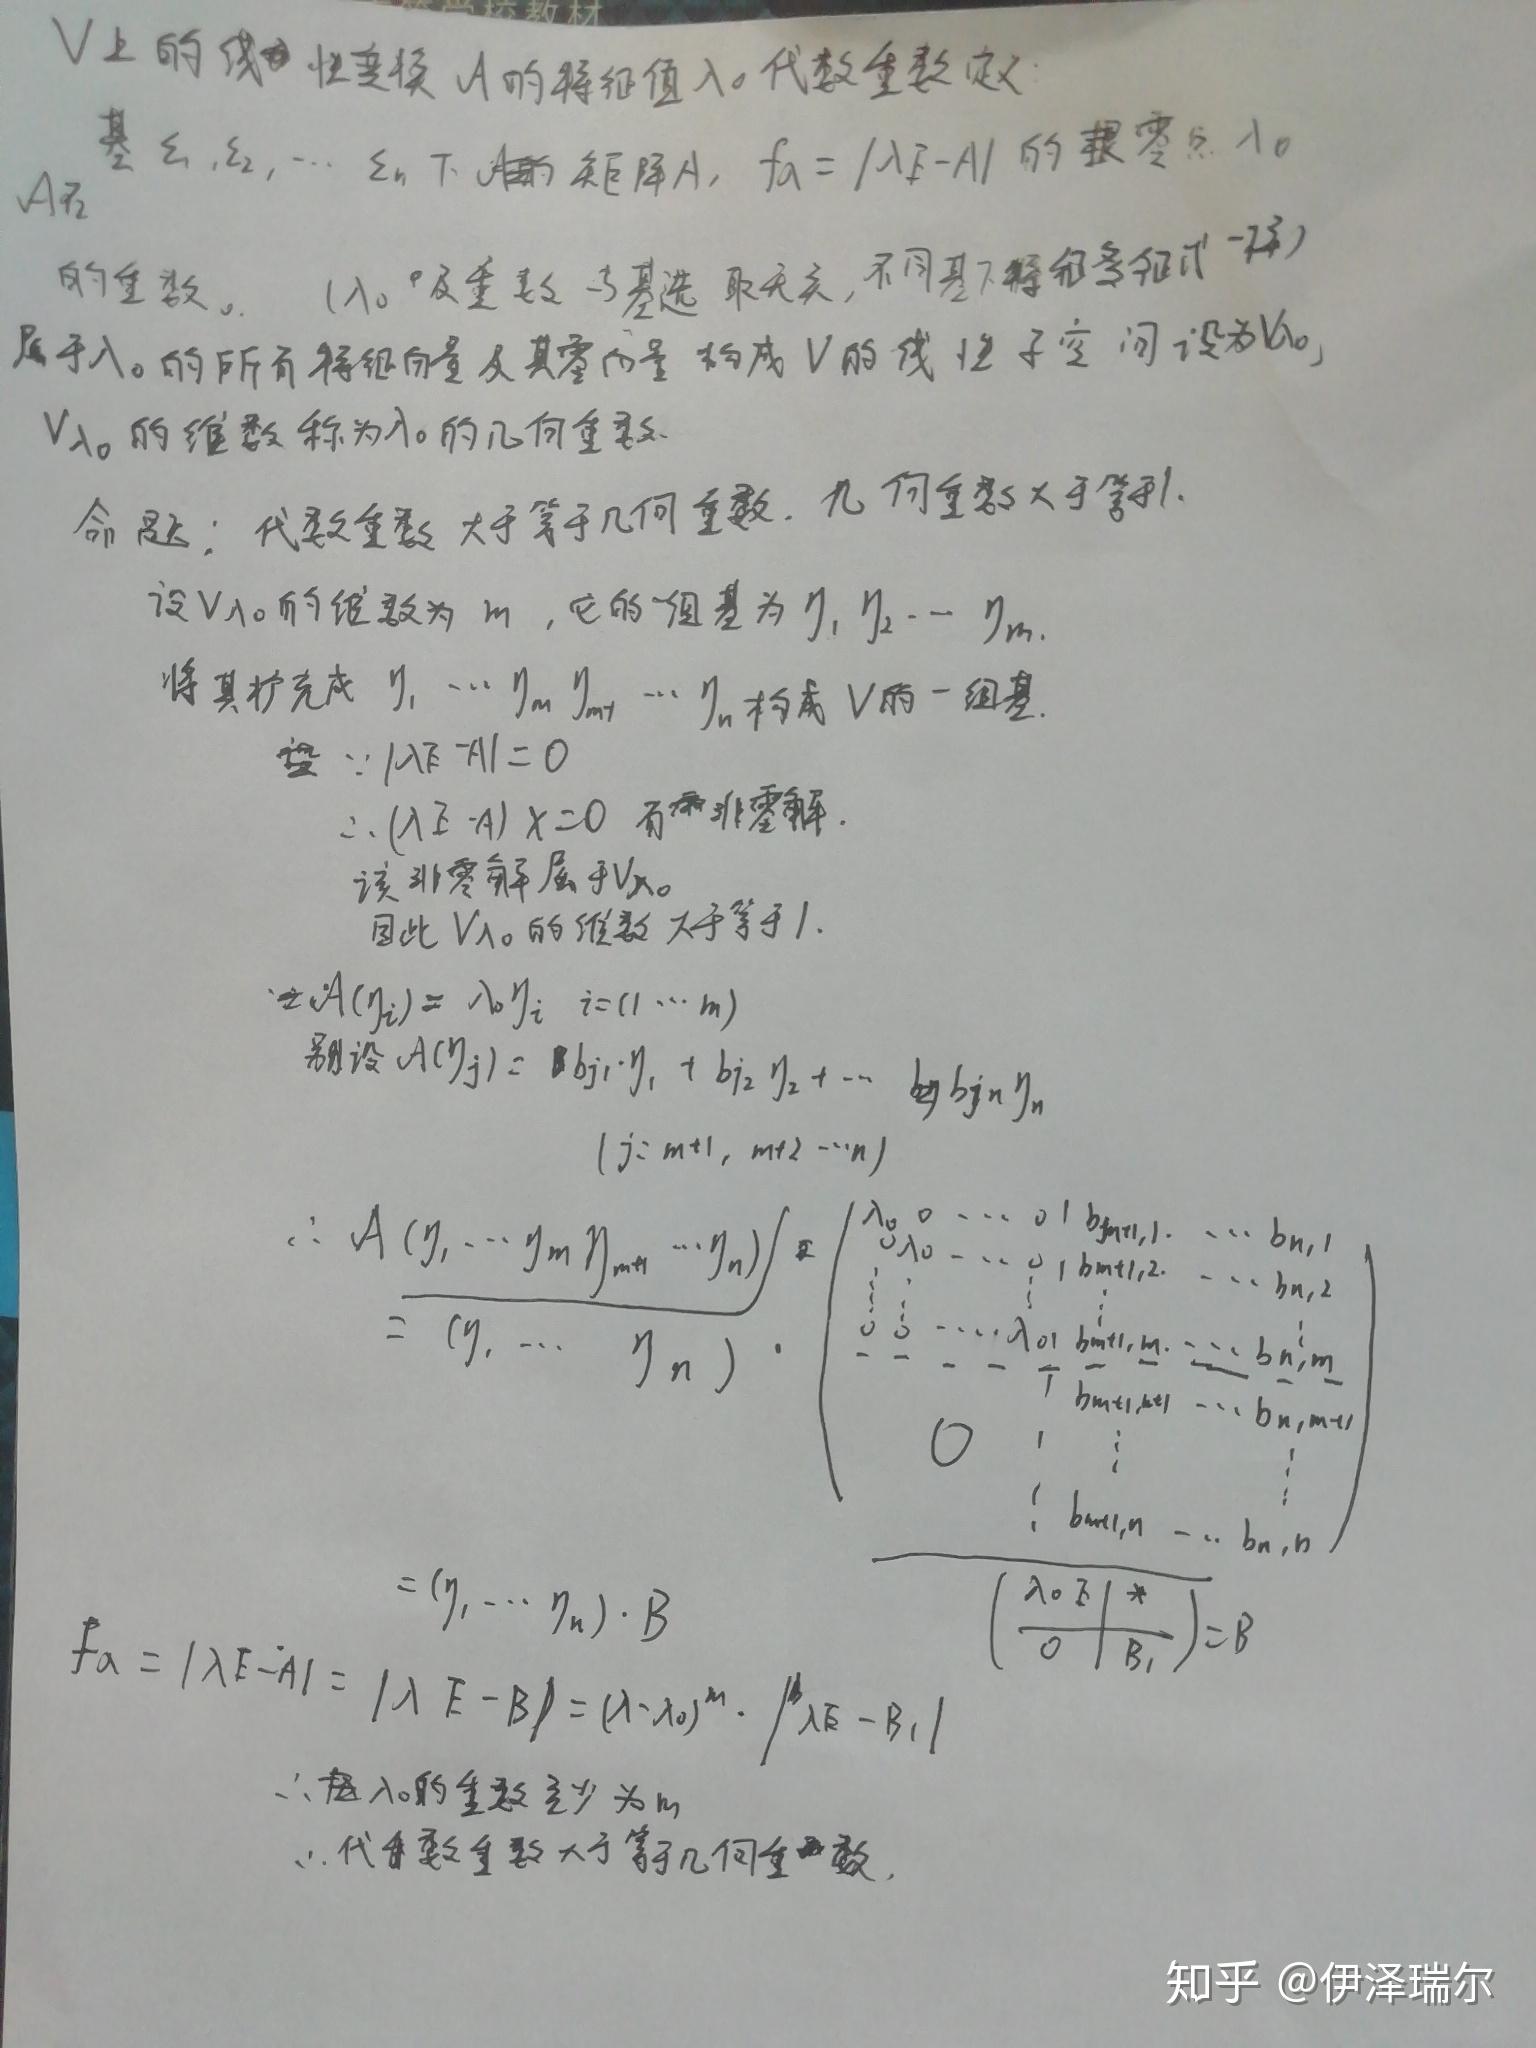 等学校教材
V上的线性变换A的特征值λ₀代数重数定义:
基 ε₁,ε₂,… εₙ下A的矩阵A, fₐ=|λE-A|的零点λ₀
的重数。 (λ₀及重数与基选取无关,不同基下特征多项式一样)
属于λ₀的所有特征向量及其零向量构成V的线性子空间设为Vλ₀,
Vλ₀的维数称为λ₀的几何重数.
命题: 代数重数大于等于几何重数. 几何重数大于等于1.
设Vλ₀的维数为m,它的一组基为η₁ η₂ … ηₘ.
将其扩充成 η₁ … ηₘ ηₘ₊₁ … ηₙ构成V的一组基.
∵|λE-A|=0
∴(λE-A)X=0 有非零解.
该非零解属于Vλ₀
因此Vλ₀的维数大于等于1.
A(ηᵢ)= λ₀ηᵢ i=(1…m)
别设A(ηⱼ)= bj₁·η₁ + bj₂ η₂ +… bjn ηₙ
(j= m+1, m+2 …n)
∴ A(η₁ … ηₘ ηₘ₊₁ … ηₙ)
= (η₁ … ηₙ) ·
λ₀ 0 … 0 | bm+1,1 … bn,1
0 λ₀ … 0 | bm+1,2 … bn,2
0 0 … λ₀ | bm+1,m … bn,m
bm+1,m+1 … bn,m+1
0
bm+1,n … bn,n
(λ₀E | *
0 | B₁) = B
= (η₁ … ηₙ)·B
fₐ = |λE-A| = |λE-B| = (λ-λ₀)ᵐ·|λE-B₁|
∴λ₀的重数至少为m
∴代数重数大于等于几何重数.
知乎 @伊泽瑞尔